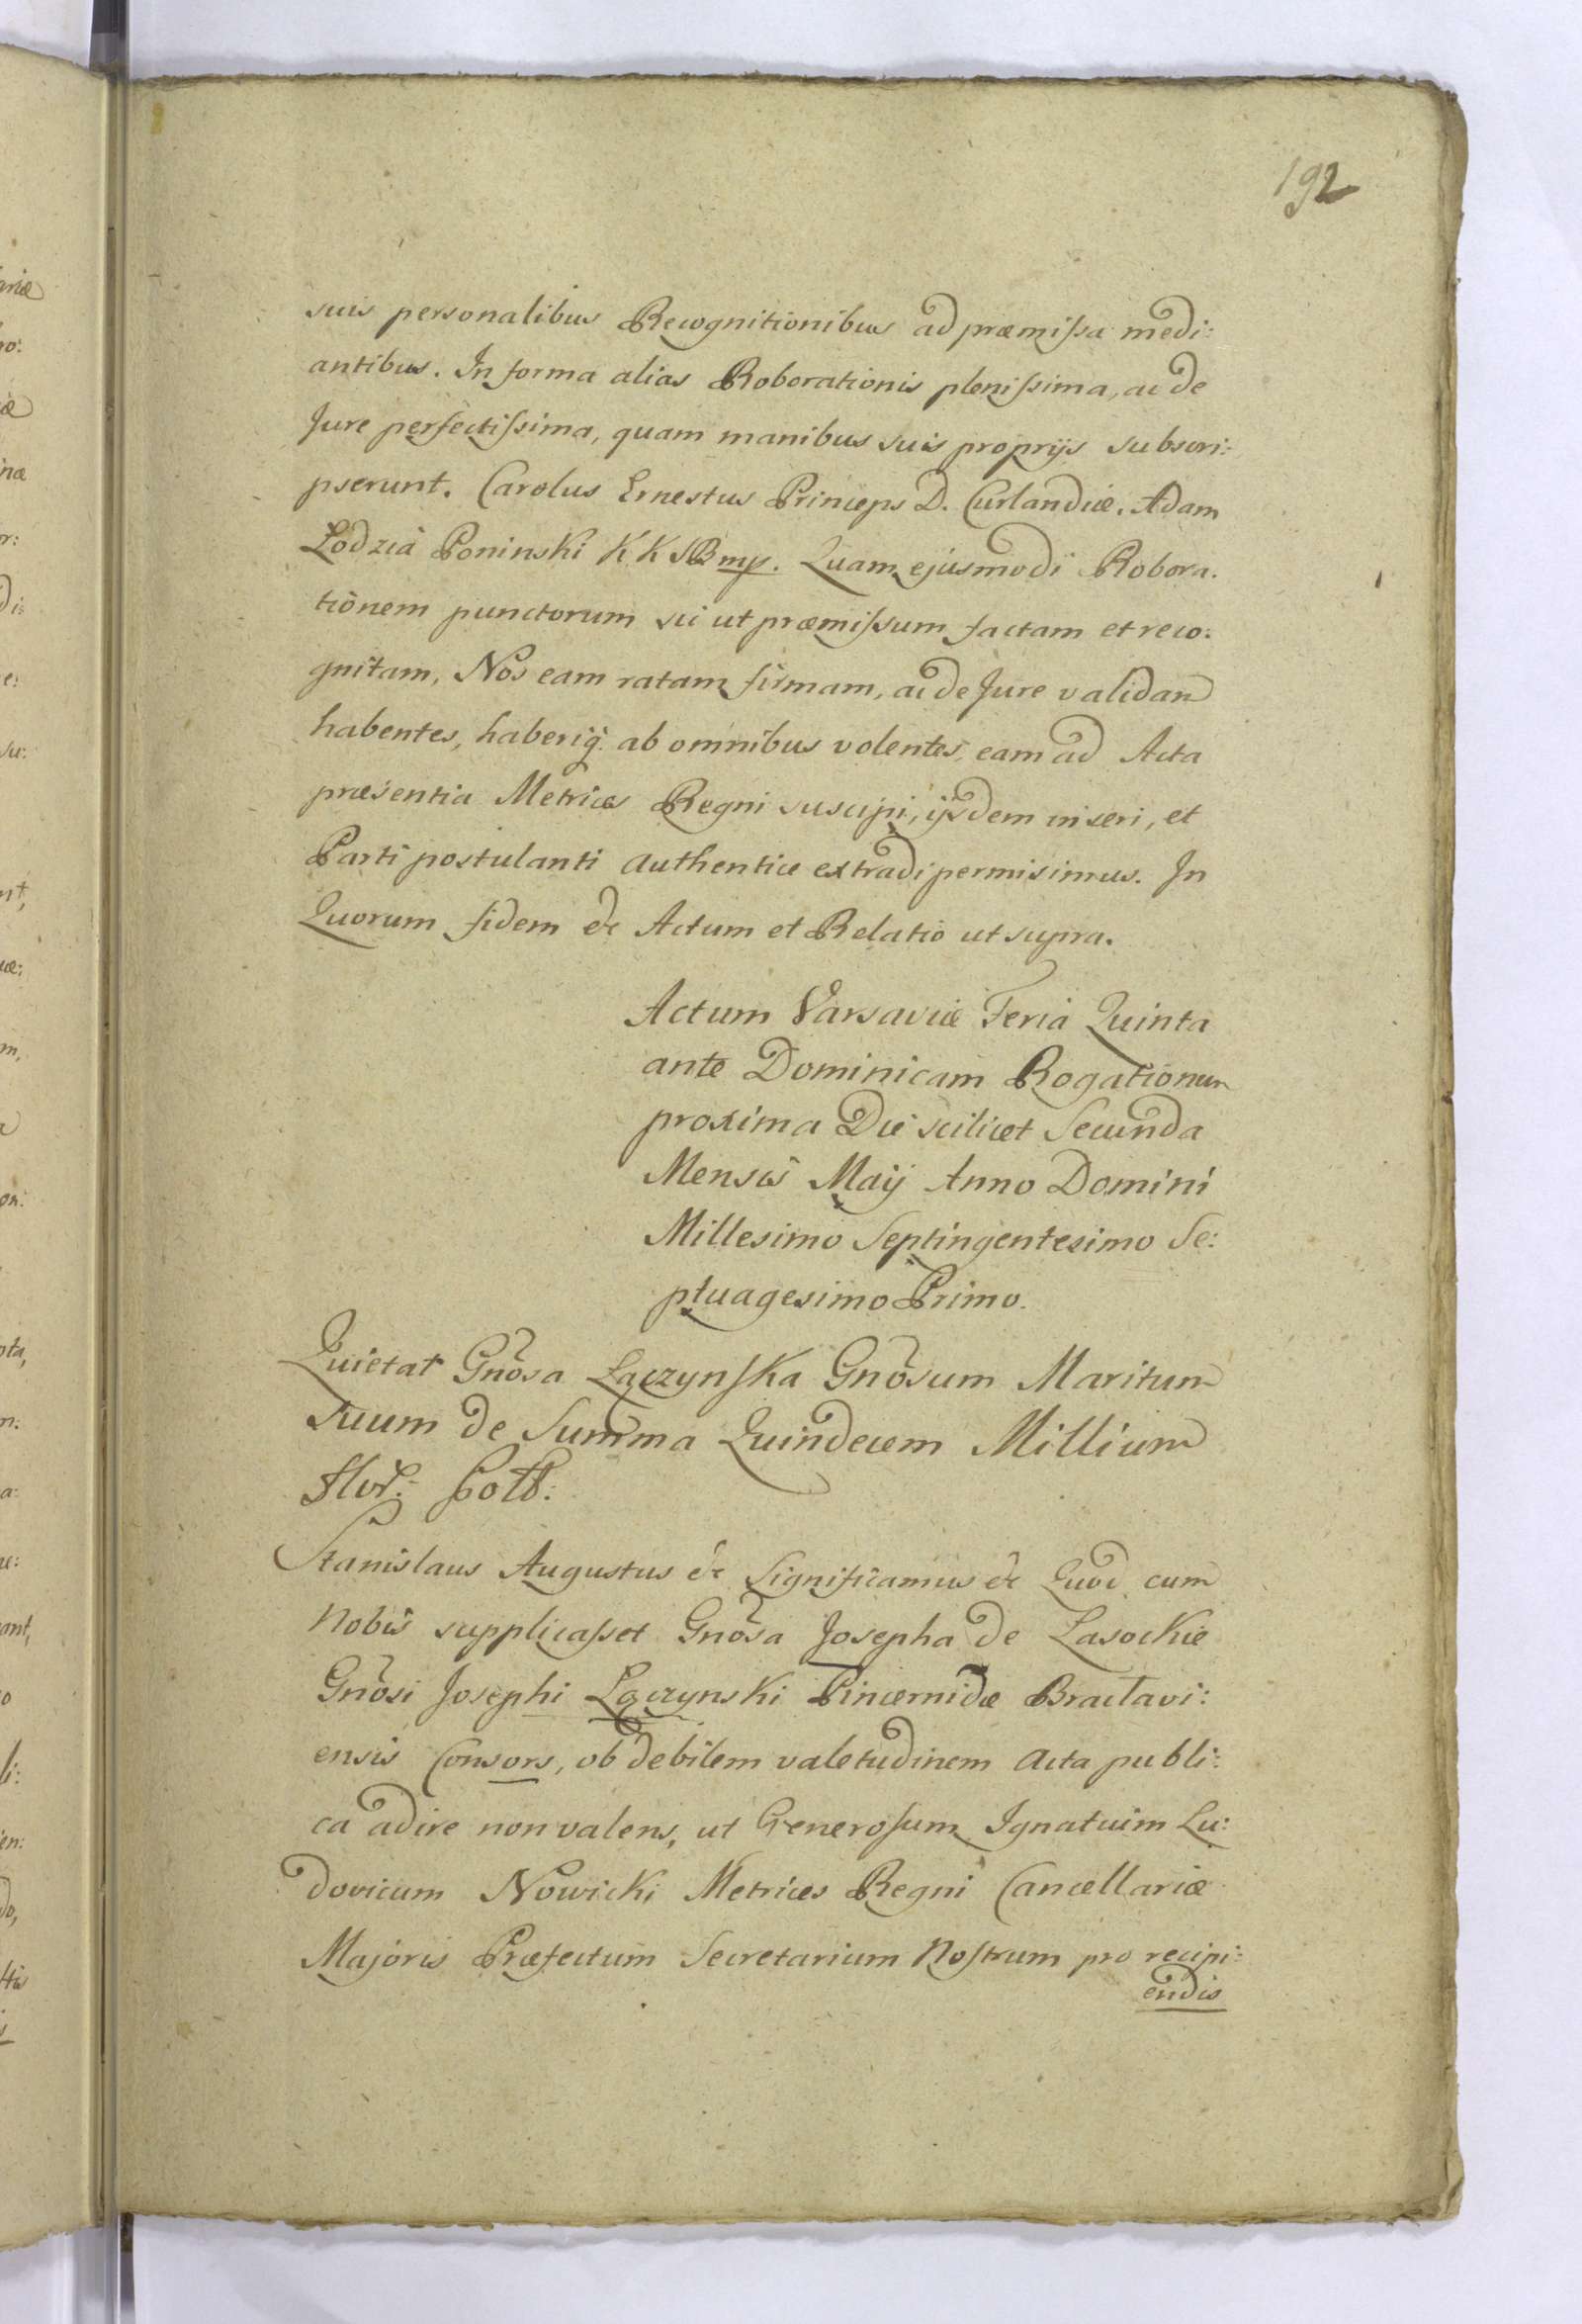 192
suis personalibus Recognitionibus ad præmissa medi:
antibus. In forma alias Roborationis plenissima, ac de
Jure perfectissima, quam manibus suis proprijs subscri:
pserunt. Carolus Ernestus Princeps D. Curlandiæ. Adam
Łodzia Poninski K K mp. Quam ejusmodi Robora.
tionem punctorum sic ut præmissum factam et reco:
gnitam, Nos eam ratam firmam, ac de Jure validam
habentes, haberiq: ab omnibus volentes, eam ad Acta
præsentia Metrices Regni suscipi, ijsdem inseri, et
Parti postulanti authentice extradi permisimus. In
Quorum fidem &c Actum et Relatio ut supra.
Actum Varsaviæ Feria Quinta
ante Dominicam Rogationum
proxima Die scilicet Secunda
Mensis Maij Anno Domini
Millesimo Septingentesimo Se:
ptuagesimo Primo.
Quietat Gnosa Łączynska Gnosum Maritum
Suum de Summa Quindecem Millium
Flor: Poll:
Stanislaus Augustus &c Significamus &c Quod cum
Nobis supplicasset Gnosa Josepha de Lasockie
Gnosi Josephi Łączynski Pincernidæ Braclavi:
ensis Consors, ob debilem valetudinem Acta publi:
ca adire non valens, ut Generosum Ignatium Lu:
dovicum Nowicki Metrices Regni Cancellariæ
Majoris Præfectum Secretarium Nostrum pro recipi:
endis